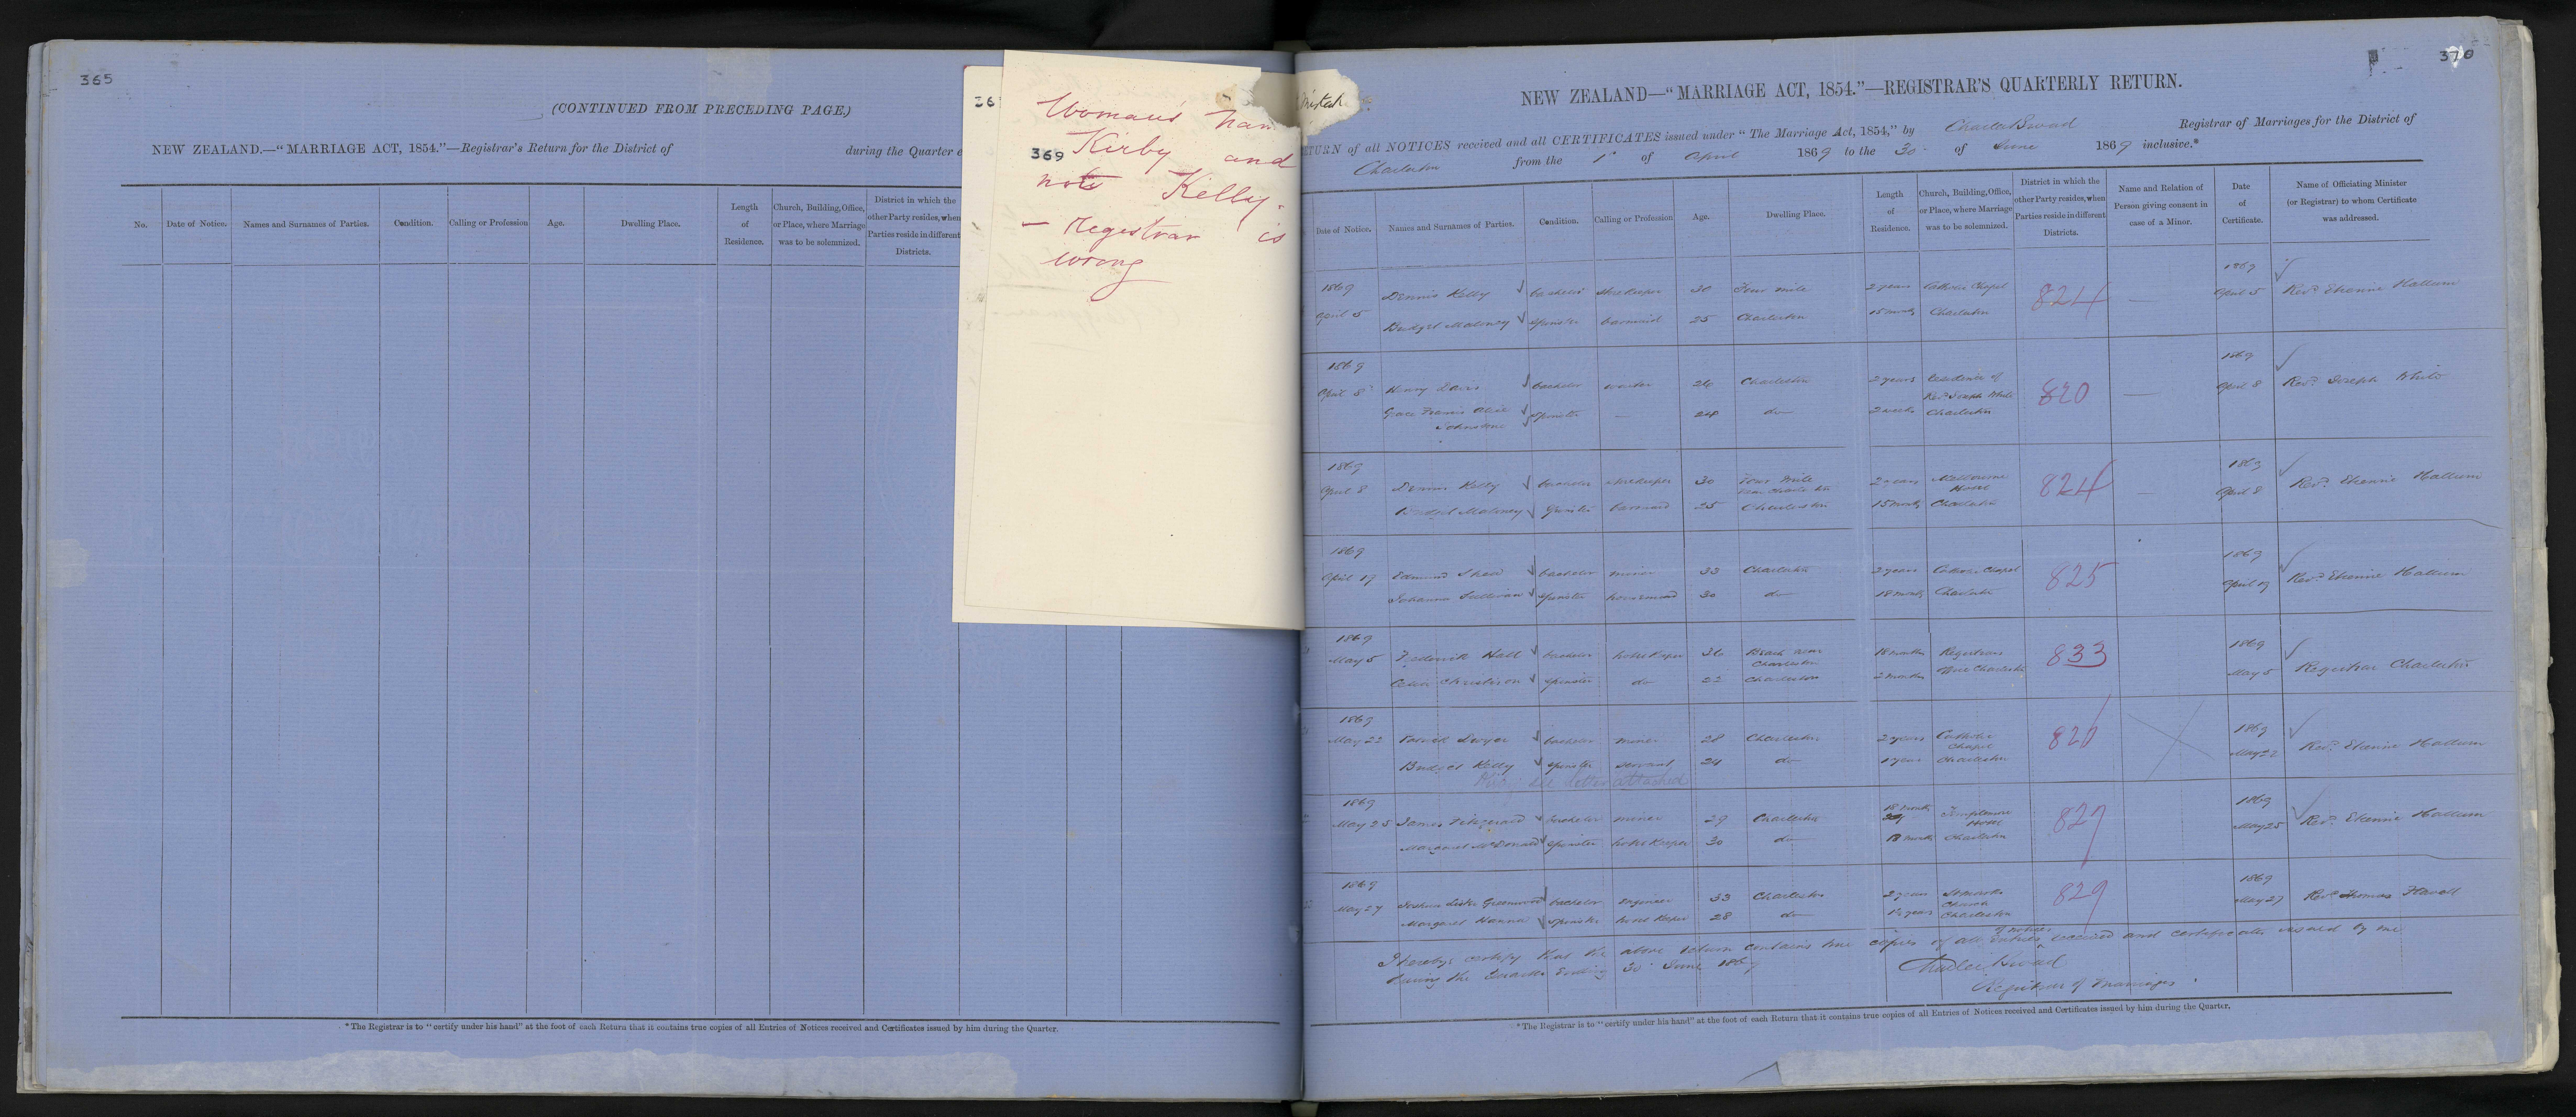 365
(CONTINUED FROM PRECEDING PAGE.)
NEW ZEALAND.—"MARRIAGE ACT, 1854."—Registrar's Return for the District of during the Quarter e
No. Date of Notice. Names and Surnames of Parties. Condition. Calling or Profession Age. Dwelling Place. Length of Residence. Church, Building, Office, or Place, where Marriage was to be solemnized. District in which the other Party resides, when Parties reside in different Districts.
*The Registrar is to "certify under his hand" at the foot of each Return that it contains true copies of all Entries of Notices received and Certificates issued by him during the Quarter.
36
369
Woman's nam
Kirby and
not Kelly.
— Registrar is
wrong
370
NEW ZEALAND—"MARRIAGE ACT, 1854."—REGISTRAR'S QUARTERLY RETURN.
TURN of all NOTICES received and all CERTIFICATES issued under "The Marriage Act, 1854," by Charles Broad Registrar of Marriages for the District of
Charleston from the 1st of April 1869 to the 30 of June 1869 inclusive.*
Date of Notice. Names and Surnames of Parties. Condition. Calling or Profession Age. Dwelling Place. Length of Residence. Church, Building, Office, or Place, where Marriage was to be solemnized. District in which the other Party resides, when Parties reside in different Districts. Name and Relation of Person giving consent in case of a Minor. Date of Certificate. Name of Officiating Minister (or Registrar) to whom Certificate was addressed.
1869 1869
April 5 Dennis Kelly bachelor storekeeper 30 Four mile 2 years Catholic Chapel 824 April 5 Revd. Etienne Hallum
Bridget Maloney spinster barmaid 25 Charleston 15 months Charleston
1869 1869
April 8 Henry Davis bachelor waiter 26 Charleston 2 years Residence of 820 April 8 Revd. Joseph White
Revd. Joseph White
Grace Francis Alice spinster — 24 do 2 weeks Charleston
Johnstone
1869 1869
April 8 Dennis Kelly bachelor storekeeper 30 Four mile 2 years Melbourne 824 April 8 Revd. Etienne Hallum
near Charleston Hotel
Bridget Maloney spinster barmaid 25 Charleston 15 months Charleston
1869 1869
April 19 Edmund Shea bachelor miner 33 Charleston 2 years Catholic Chapel 825 April 19 Revd. Etienne Hallum
Johanna Sullivan spinster housemaid 30 do 18 months Charleston
1869 1869
May 5 Frederick Hall bachelor hotelkeeper 36 Beach near 18 months Registrars 833 May 5 Registrar Charleston
Charleston Office Charleston
Christison spinster do 22 Charleston 2 months
1869 1869
May 22 Patrick Dwyer bachelor miner 28 Charleston 2 years Catholic 826 May 22 Revd. Etienne Hallum
Chapel
Bridget Kelly spinster servant 24 do 1 year Charleston
see letter attached
1869 1869
May 25 James Fitzgerald bachelor miner 29 Charleston 18 months Templemore 827 May 25 Revd. Etienne Hallum
Hotel
Margaret McDonald spinster hotelkeeper 30 do 18 months Charleston
1869 1869
May 27 Joshua Lister Greenwood bachelor engineer 33 Charleston 2 years St marks 829 May 27 Revd. Thomas Flavell
Church
Margaret Hanna spinster hotelkeeper 28 do 1½ years Charleston
I hereby certify that the above return contains true copies of all entries of notices received and certificates issued by me
during the Quarter Ending 30 June 1869
Charles Broad
Registrar of Marriages
*The Registrar is to "certify under his hand" at the foot of each Return that it contains true copies of all Entries of Notices received and Certificates issued by him during the Quarter.